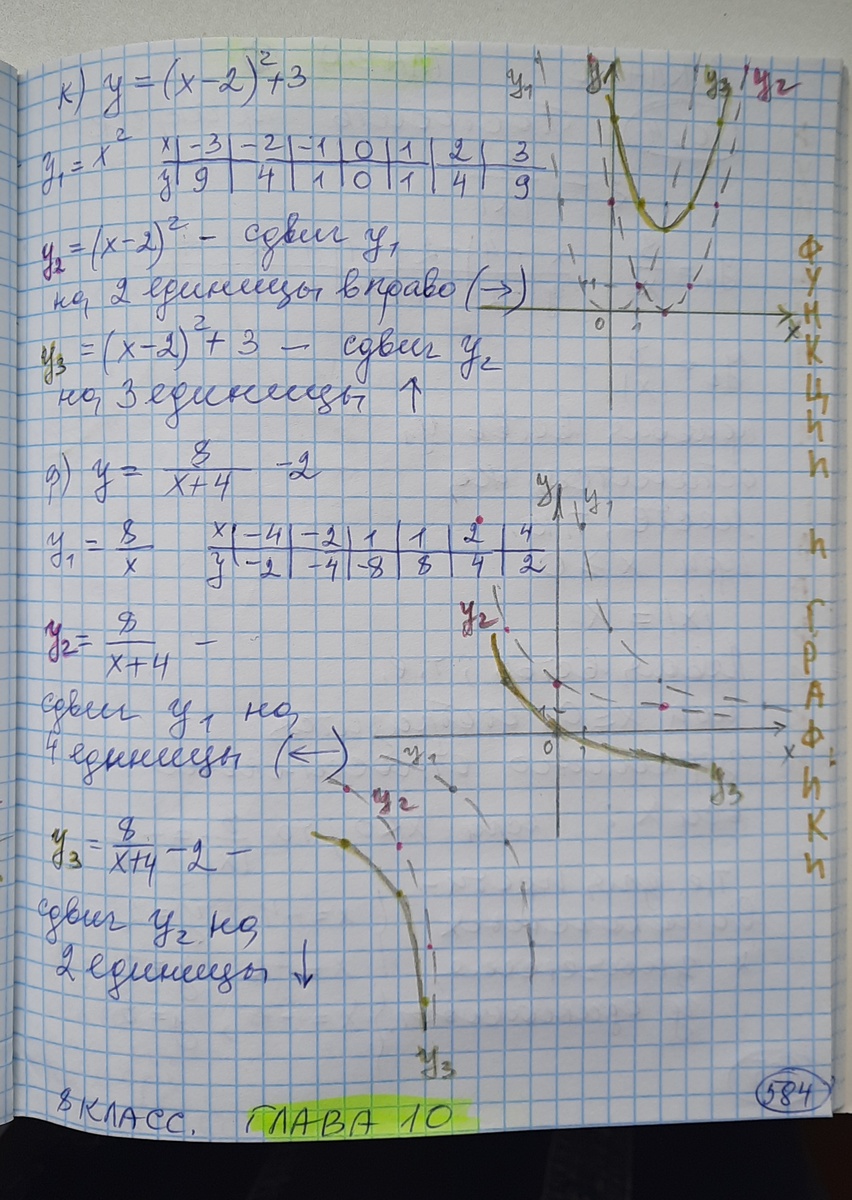 к) y = (x-2)²+3
y₁ = x²
x | -3 | -2 | -1 | 0 | 1 | 2 | 3
y | 9 | 4 | 1 | 0 | 1 | 4 | 9
y₂ = (x-2)² – сдвиг y₁
на 2 единицы вправо (→)
y₃ = (x-2)² + 3 — сдвиг y₂
на 3 единицы ↑
y₁ y y₃ y₂
1
0 1 x
y = 8/(x+4) -2
y₁ = 8/x
x | -4 | -2 | 1 | 1 | 2 | 4
y | -2 | -4 | -8 | 8 | 4 | 2
y₂ = 8/(x+4) –
сдвиг y₁ на
4 единицы (←)
y₃ = 8/(x+4) - 2 –
сдвиг y₂ на
2 единицы ↓
y y₁
y₂
1
0 1 x
y₁
y₂
y₃
y₃
ФУНКЦИИ И ГРАФИКИ
8 КЛАСС. ГЛАВА 10
584